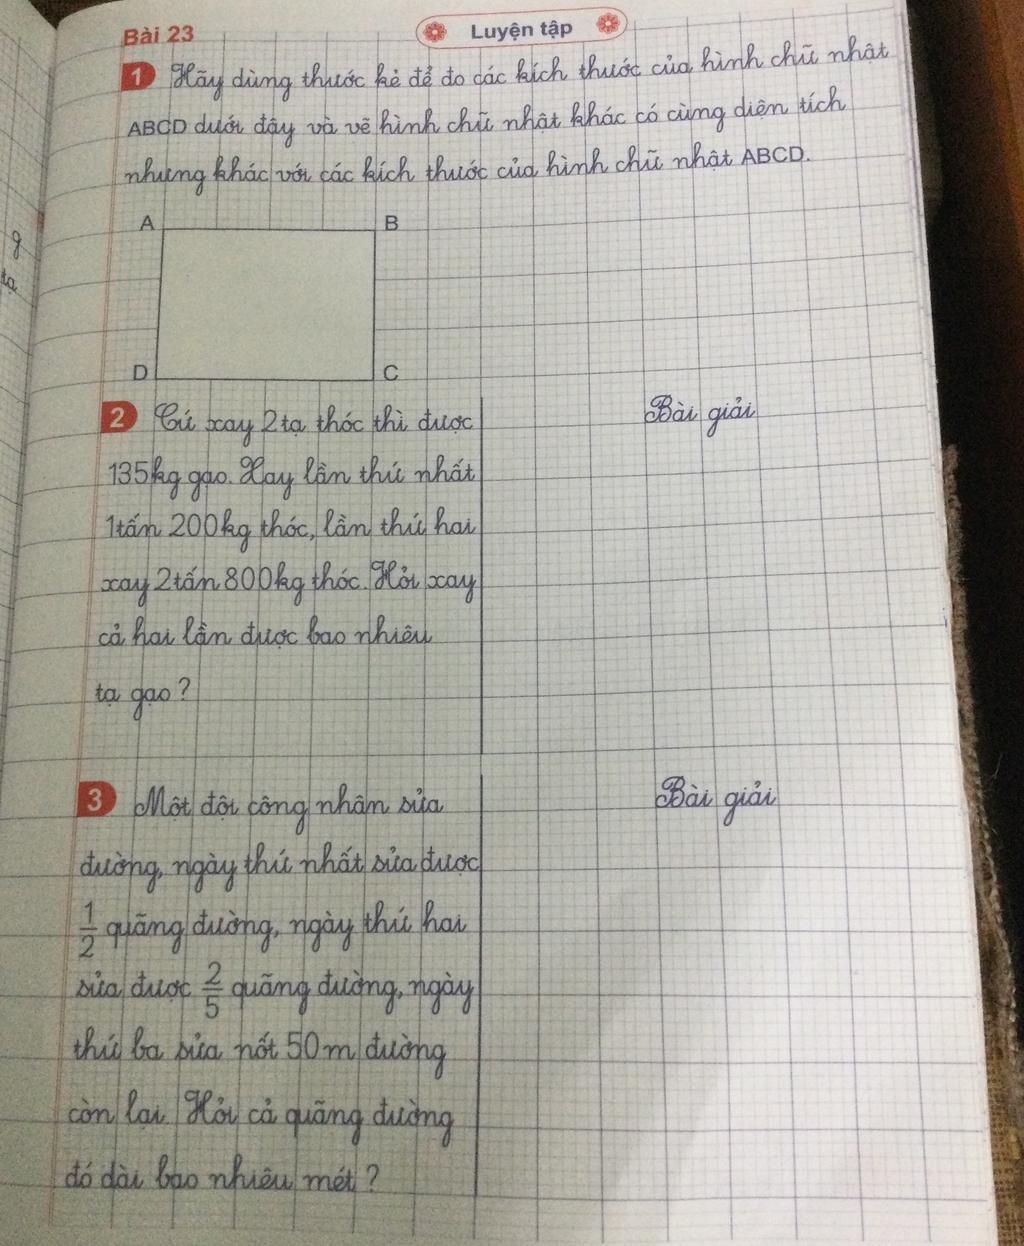 Bài 23
Luyện tập
1 Hãy dùng thước kẻ để đo các kích thước của hình chữ nhật
ABCD dưới đây và vẽ hình chữ nhật khác có cùng diện tích
nhưng khác với các kích thước của hình chữ nhật ABCD.
A B
D C
2 Cứ xay 2 tạ thóc thì được
135kg gạo. Xay lần thứ nhất
1 tấn 200kg thóc, lần thứ hai
xay 2 tấn 800kg thóc. Hỏi xay
cả hai lần được bao nhiêu
tạ gạo?
Bài giải
3 Một đội công nhân sửa
đường, ngày thứ nhất sửa được
1/2 quãng đường, ngày thứ hai
sửa được 2/5 quãng đường, ngày
thứ ba sửa nốt 50m đường
còn lại. Hỏi cả quãng đường
đó dài bao nhiêu mét?
Bài giải
g
tạ